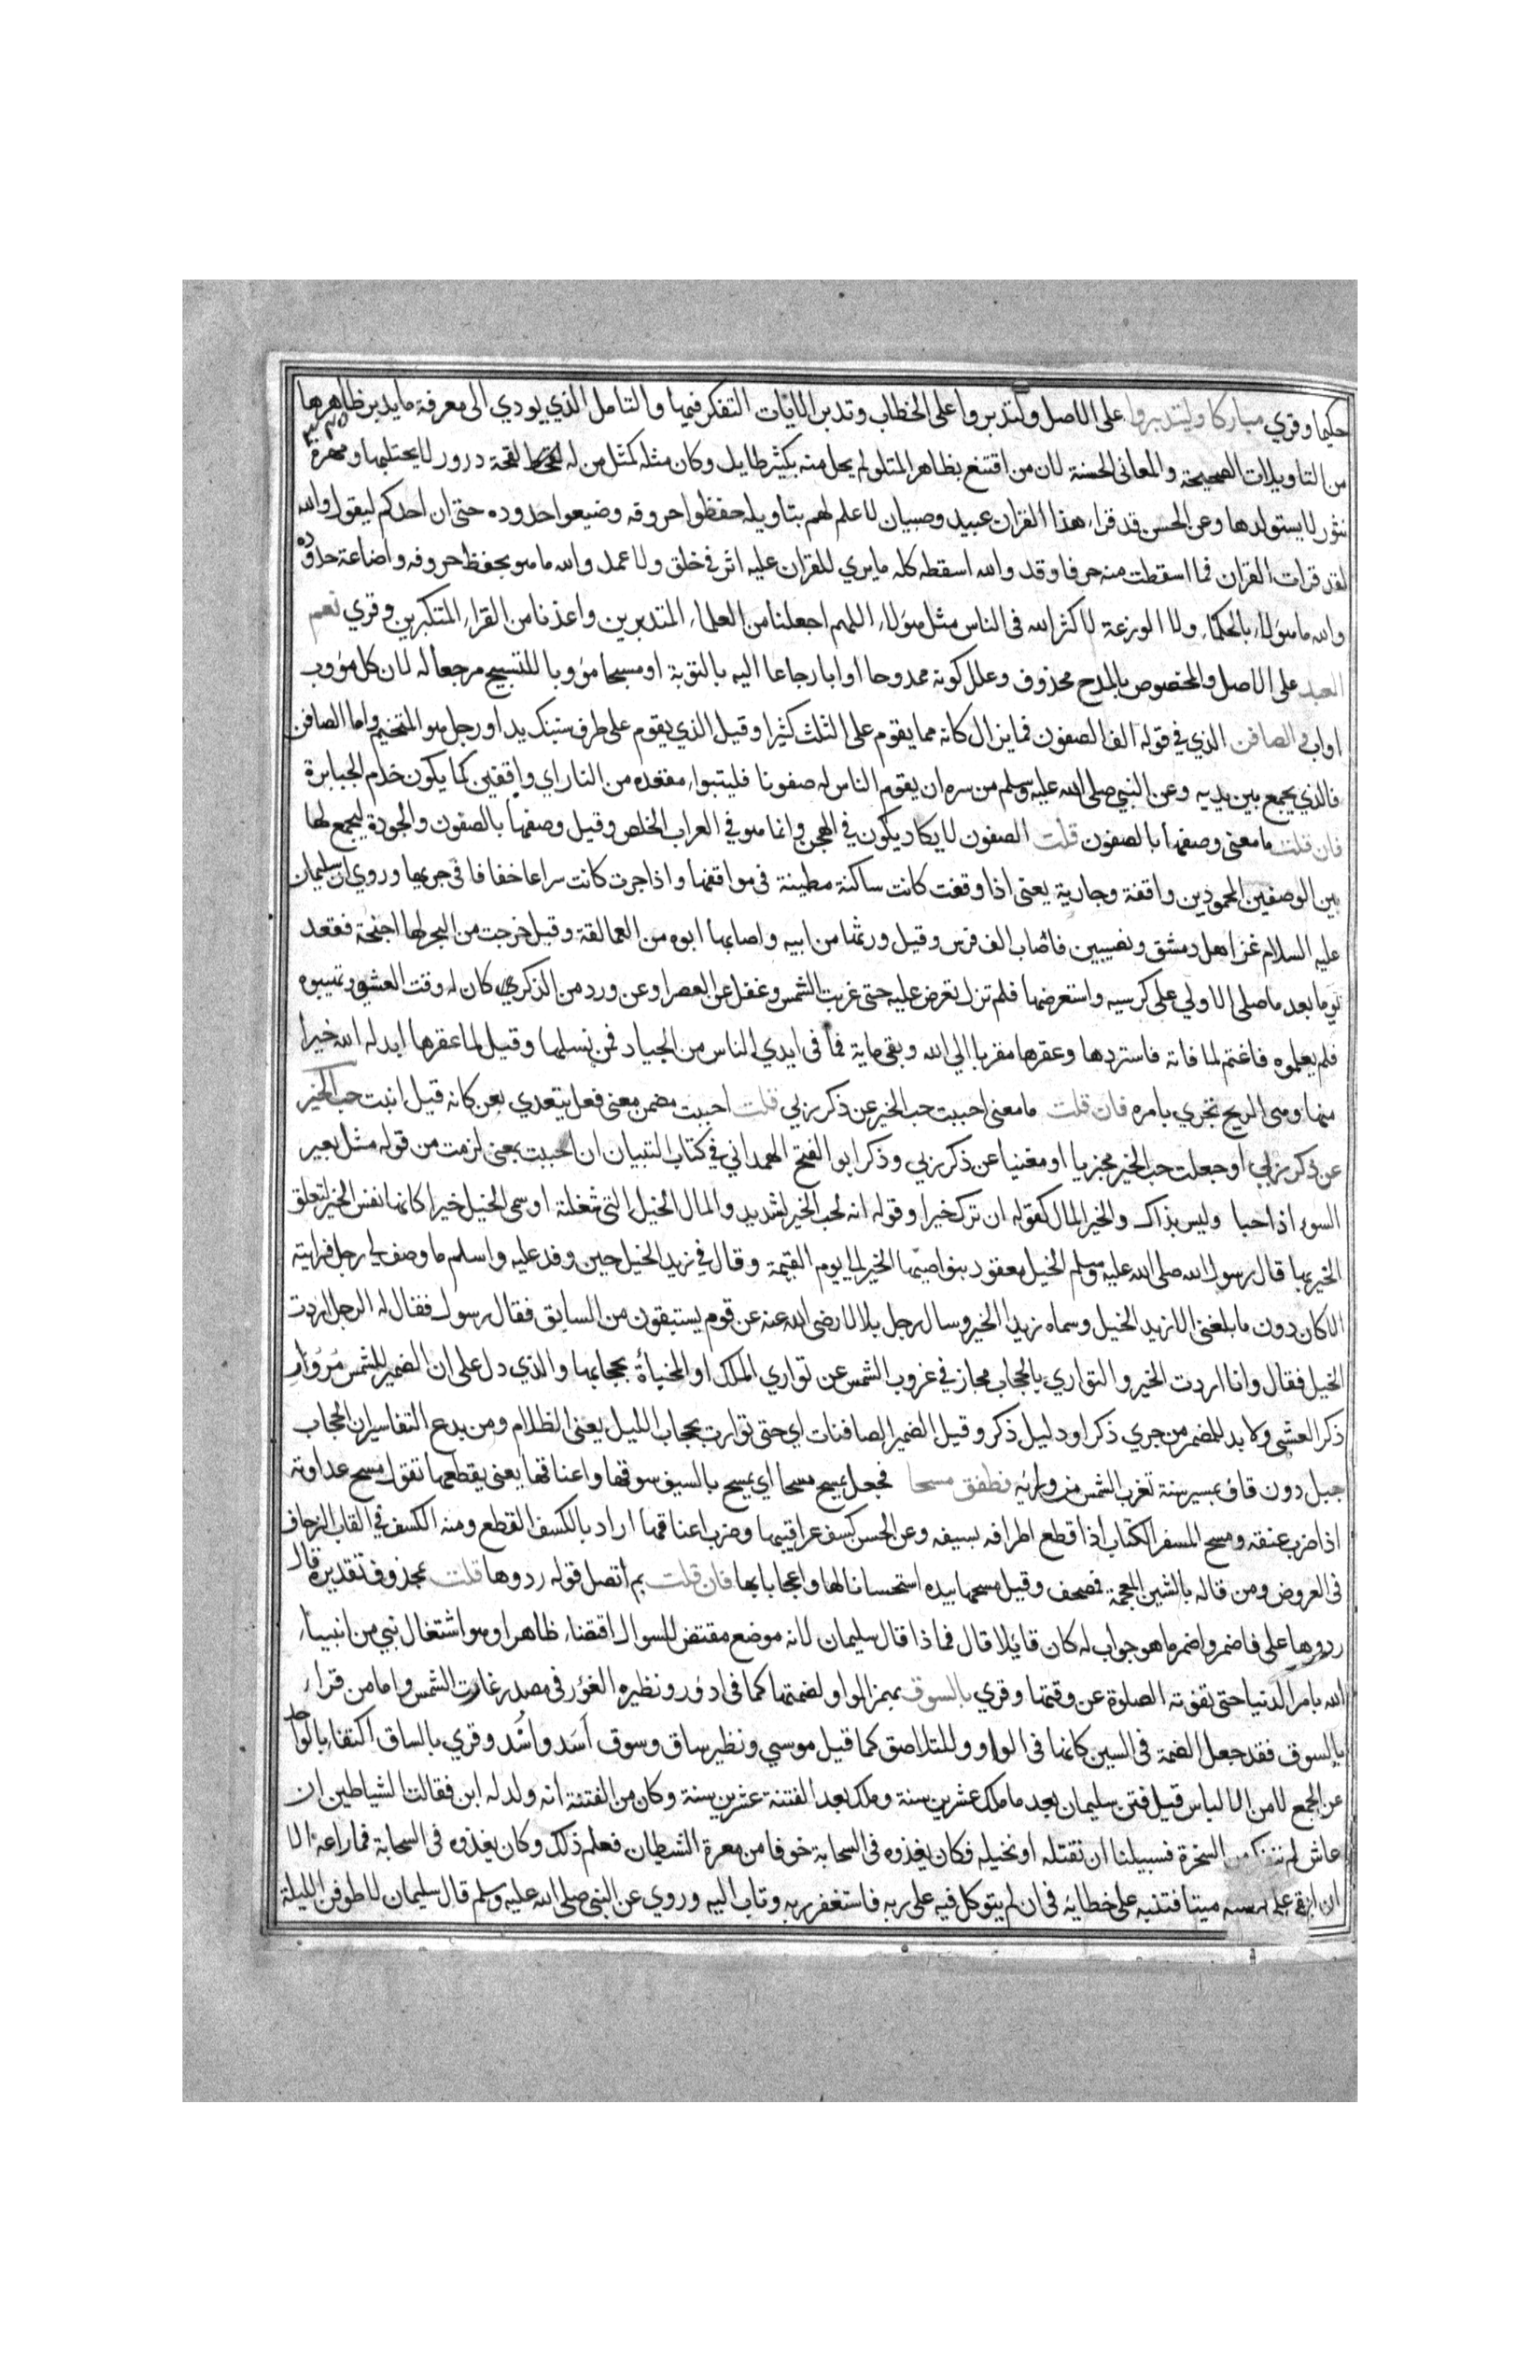 حكيما وقري مباركا وليتدبروا على الاصل ولتدبروا على الخطاب وتدبر الايات التفكر فيها والتامل الذي يودي الى معرفة ما يدبر ظاهرها
من التاويلات الصحيحة والمعاني الحسنة لان من اقتنع بظاهر المتلو لم يحل منه بكثير طايل وكان مثله كمثل من له لقحة درور لا يحتلبها ومهرة
نثور لا يستولدها وعن الحسن قد قراء هذا القران عبيد وصبيان لا علم لهم بتاويله حفظوا حروفه وضيعوا حدوده حتى ان احدكم ليقول والله
لقد قرات القران فما اسقطت منه حرفا وقد والله اسقطه كله ما يري للقران عليه اثر في خلق ولا عمل والله ما هو بحفظ حروفه واضاعة حدوده
والله ما هؤلاء بالحكماء ولا الوزعة لا كثر الله في الناس مثل هؤلاء اللهم اجعلنا من العلماء المتدبرين واعذنا من القراء المتكبرين وقري نعم
العبد على الاصل والمخصوص بالمدح محذوف وعلل كونه ممدوحا اوابا رجاعا اليه بالتوبة او مسبحا مؤوبا للتسبيح مرجعا له لان كل مؤوب
اواب والصافن الذي في قوله الف الصفون فما يزال كانه مما يقوم على الثلث كثيرا وقيل الذي يقوم على طرف سنبك يد او رجل هو المتخيم واما الصافن
فالذي يجمع بين يديه وعن النبي صلى الله عليه وسلم من سره ان يقوم الناس له صفونا فليتبواء مقعده من النار اي واقفين كما يكون خدام الجبابرة
فان قلت ما معنى وصفها بالصفون قلت الصفون لا يكاد يكون في الهجن وانما هو في العراب الخلص وقيل وصفها بالصفون والجودة ليجمع لها
بين الوصفين المحمودين واقفة وجارية يعني اذا وقفت كانت ساكنة مطينة في مواقفها واذا جرت كانت سراعا خفافا في جريها وروي ان سليمان
عليه السلام غزا اهل دمشق ونصيبين فاصاب الف فرس وقيل ورثها من ابيه واصابها ابوه من العمالقة وقيل خرجت من البحر لها اجنحة فقعد
يوما بعد ما صلى الاولي على كرسيه واستعرضها فلم تزل تعرض عليه حتى غربت الشمس وغفل عن العصر او عن ورد من الذكر كان له وقت العشي وتهيبوه
فلم يعلموه فاغتم لما فاته فاستردها وعقرها مقربا الي الله وبقي ماية فما في ايدي الناس من الجياد فمن نسلها وقيل لما عقرها ابدله الله خيرا
منها وهي الريح تجري بامره فان قلت ما معنى احببت حب الخير عن ذكر ربي قلت احببت مضمن معنى فعل يتعدي بعن كانه قيل انبت حب الخير
عن ذكر ربي او جعلت حب الخير مجزيا او مغنيا عن ذكر ربي وذكر ابو الفتح الهمداني في كتاب التبيان ان احببت بمعنى لزمت من قوله مثل بعير
السوء اذا حبا وليس بذاك والخير المال كقوله ان ترك خيرا وقوله انه لحب الخير لشديد والمال الخيل التي شغلته او سمى الخيل خيرا كانها نفس الخير لتعلق
الخير بها قال رسول الله صلى الله عليه وسلم الخيل معقود بنواصيها الخير الى يوم القيمة وقال في زيد الخيل حين وفد عليه واسلم ما وصف لي رجل فرايته
الا كان دون ما بلغني الا زيد الخيل وسماه زيد الخير وسال رجل بلالا رضى الله عنه عن قوم يستبقون من السابق فقال رسول فقال له الرجل اردت
الخيل فقال وانا اردت الخير والتواري بالحجاب مجاز في غروب الشمس عن تواري الملك او المخباة بحجابها والذي دل على ان الضمير للشمس مرور
ذكر العشي ولا بد للمضمر من جري ذكر او دليل ذكر وقيل الضمير للصافنات اي حتى توارت بحجاب الليل يعني الظلام ومن بدع التفاسير ان الحجاب
جبل دون قاف بمسير سنة تغرب الشمس من ورائه فطفق مسحا فجعل يمسح مسحا اي يمسح بالسيف سوقها واعناقها يعني يقطعها تقول مسح عداوته
اذا ضرب عنقه ومسح المسفر الكتاب اذا قطع اطرافه بسيفه وعن الحسن كسف عراقيبها وضرب اعناقها اراد بالكسف القطع ومنه الكسف في القاب الزحاف
في العروض ومن قاله بالشين المعجمة فمصحف وقيل مسحها بيده استحسانا لها واعجابا بها فان قلت بم اتصل قوله ردوها قلت بمحذوف تقديره قال
ردوها على فاضمر واضمر ما هو جواب له كان قايلا قال فماذا قال سليمان لانه موضع مقتض للسوال اقتضاء ظاهرا وهو اشتغال نبي من انبياء
الله بامر الدنيا حتى تفوته الصلوة عن وقتها وقري بالسوق بهمز الواو لضمتها كما في ادؤر ونظيره الغؤر في مصدر غارت الشمس واما من قراء
بالسوق فقد جعل الضمة في السين كانها في الواو وللتلاصق كما قيل موسي ونظير ساق وسوق اسد واسد وقري بالساق اكتفاء بالواحد
عن الجمع لامن الالباس قيل فتن سليمان بعد ما ملك عشرين سنة وملك بعد الفتنة عشرين سنة وكان من الفتنة انه ولد له ابن فقالت الشياطين ان
عاش لم ننفك من السخرة فسبيلنا ان نقتله او نخبله فكان يغذوه في السحابة خوفا من معرة الشيطان فعلم ذلك وكان يغذوه في السحابة فما راعه الا
ان القي على كرسيه ميتا فتنبه على خطائه في ان لم يتوكل فيه على ربه فاستغفر ربه وتاب اليه وروي عن النبي صلى الله عليه وسلم قال سليمان لاطوفن الليلة